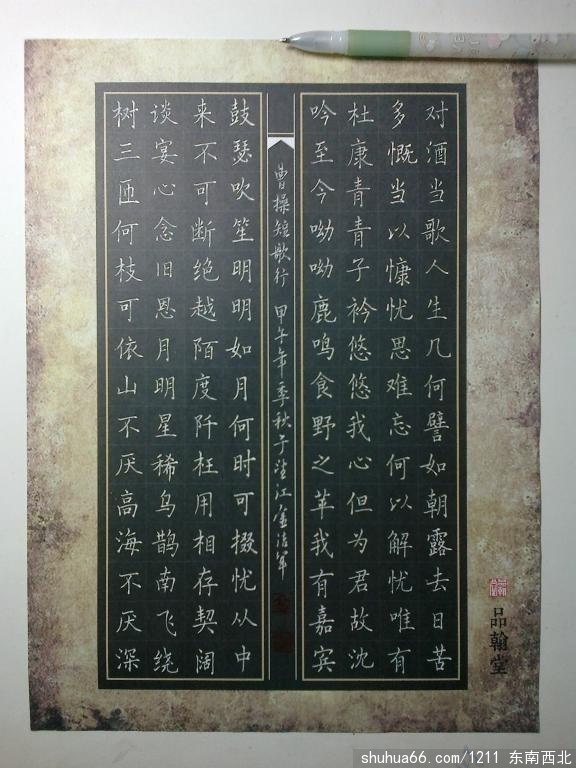 对酒当歌人生几何譬如朝露去日苦
多慨当以慷忧思难忘何以解忧唯有
杜康青青子衿悠悠我心但为君故沈
吟至今呦呦鹿鸣食野之苹我有嘉宾
曹操短歌行 甲午年季秋于望江金洁军
鼓瑟吹笙明明如月何时可掇忧从中
来不可断绝越陌度阡枉用相存契阔
谈宴心念旧恩月明星稀乌鹊南飞绕
树三匝何枝可依山不厌高海不厌深
品翰堂
shuhua66.com/1211 东南西北